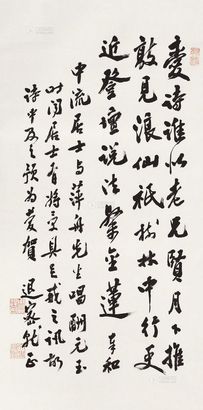 爱诗谁似老兄贤月下推
敲见浪仙祇树林中行更
近登坛说法聚金莲 奉和
中流居士与萍舟先生唱酬元玉
时闻居士有将受具足戒之讯故
诗中及之预为庆贺 退密就正